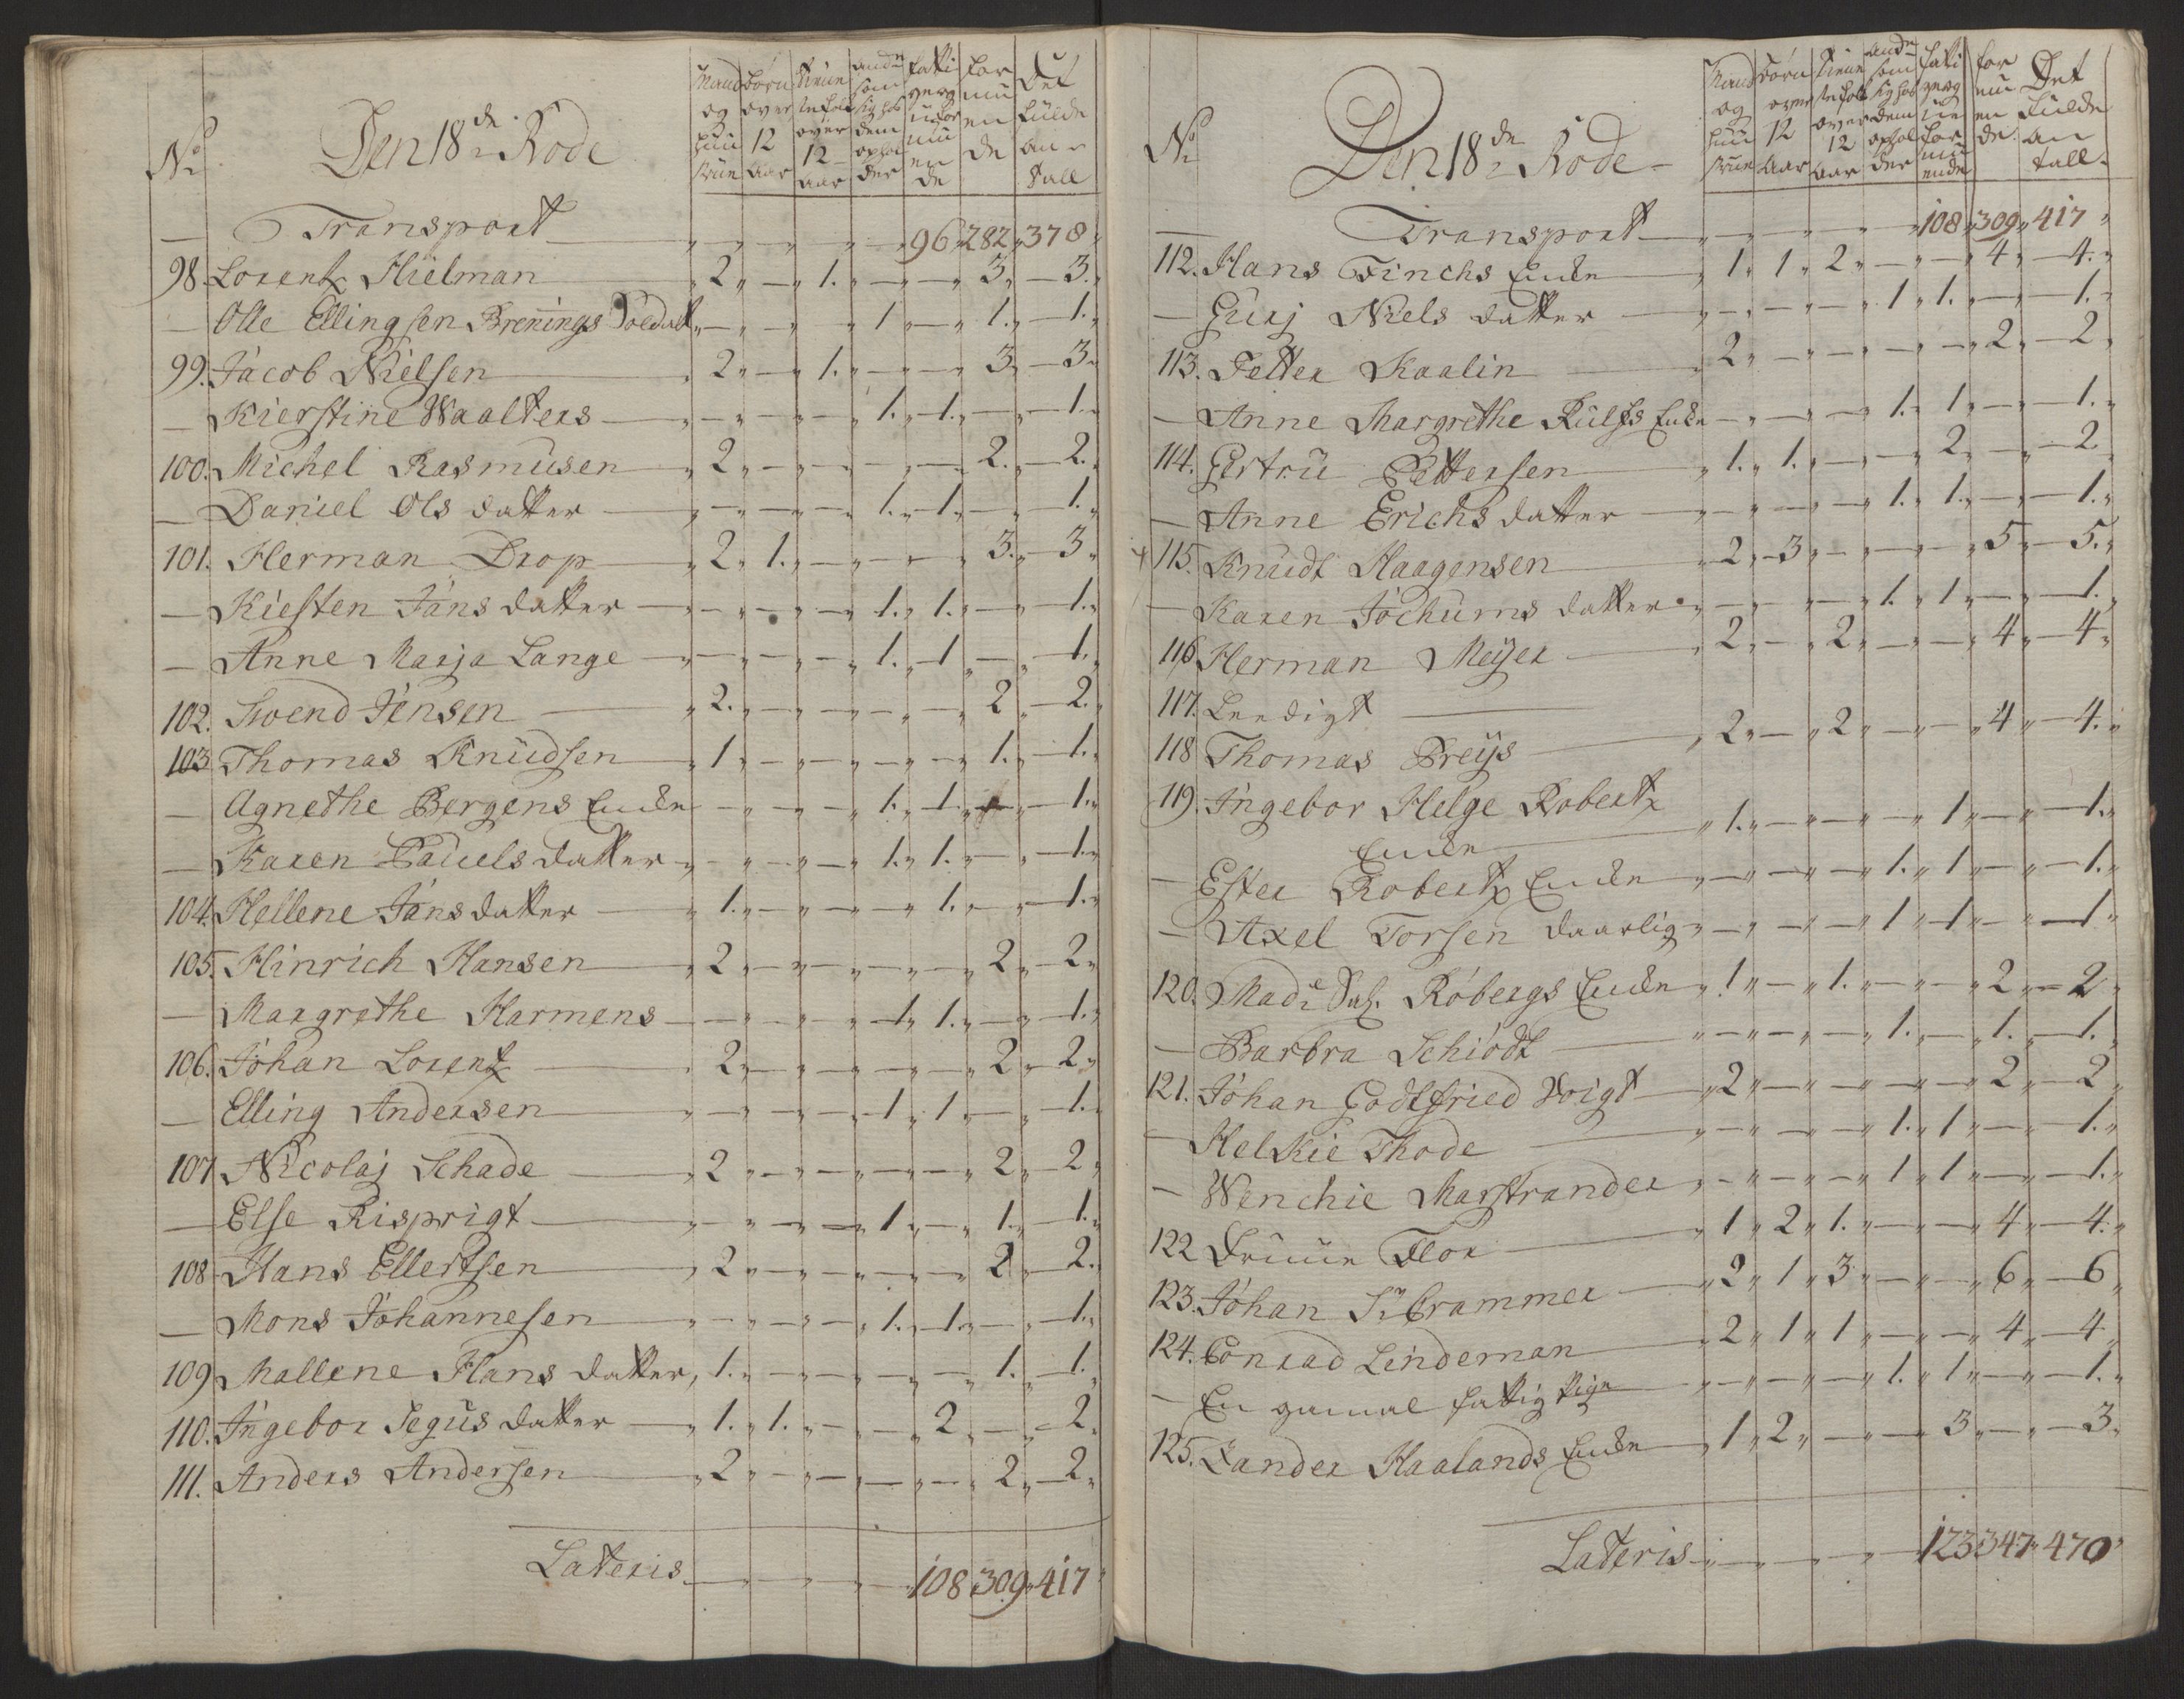 No Den 18de Rode
Mand og Huus Kone
Børn over 12 Aar
Tiene ste folk over 12 Aar
Ande som sig hos dem ophol der
Fatti ge og ufor mu en de
For mu en de
Det fulde an tall
— Transport — 96 282 378
98. Lorentz Hielman 2 — 1. — — — 3. 3.
— Olle Ellingsen Brenings Soldat — — — 1 — 1. 1.
99. Jacob Nielsen 2 — 1. — — 3. 3.
— Kierstine Waalters — — — 1. 1. — 1.
100. Michel Rasmusen 2 — — — — 2. 2.
— Daniel Ols datter — — — 1. 1. — 1.
101. Herman Drop 2 1. — — — 3. 3.
— Kiesten Jans datter — — — 1. 1. — 1.
— Anne Marja Lange — — — 1. 1 — 1.
102. Svend Jensen 2. — — — — 2 2.
103 Thomas Knudsen 1 — — — — 1. 1.
— Agnethe Bergens Enke — — — 1. 1. — 1.
— Karen Pauels datter — — — 1. 1. — 1.
104. Hellene Jans datter 1. — — — 1. — 1.
105. Hinrich Hansen 2 — — — — 2 2.
— Margrethe Harmens — — — 1 1. — 1.
106. Johan Lorentz 2 — — — — 2 2
— Elling Andersen — — — 1 1. — 1.
107 Nicolaj Schade 2 — — — — 2 2
— Else Risprigt — — — 1 — 1. 1.
108 Hans Ellertsen 2 — — — — 2 2.
— Mons Johannesen — — — 1. 1. — 1.
109 Mallene Hans datter 1. — — — — 1. 1.
110. Ingebor Segus datter 1. 1. — — 2 — 2
111. Anders Andersen 2 — — — — 2 2
Lateris — 108 309 417
No Den 18de Rode
Mand og Huus Kone
Børn over 12 Aar
Tiene ste folk over 12 Aar
Ande som sig hos dem ophol der
Fatti ge og ufor mu ende
For mu en de.
Det fulde an tall.
— Transport — 108 309 417
112. Hans Finchs Enke 1 1 2 — — 4 4.
— Gurj Niels datter — — — 1 1. — 1.
113. Petter Kaalin 2 — — — — 2 2
— Anne Margrethe Rulfs Enke — — — 1. 1 — 1.
114. Gertru Pettersen 1. 1. — — 2 — 2
— Anne Erichs datter — — — 1. 1. — 1.
115. Knudt Haagensen 2 3 — — — 5 5.
— Karen Jochums datter — — — 1. 1 — 1.
116 Herman Meyer 2 — 2 — — 4 4
117. Leedigt —
118 Thomas Preys 2 — 2 — — 4 4.
119. Ingebor Helge Robertz
Enke 1. — — — 1 — 1.
— Ester Robertz Enke — — — 1. 1 — 1.
— Axel Torsen daarlig — — — 1 1 — 1
120. Mad: Sal. Röbergs Enke 1 — 1. — — 2 2
— Barbra Schiödt — — — 1. — 1. 1.
121. Johan Godtfried Voigt 2 — — — — 2 2
— Helkie Thode — — — 1. 1 — 1.
— Wenchie Marstrander — — — 1 1 — 1.
122 Fruue Flor 1 2 1. — — 4 4.
123. Johan Sr. Crammer 2 1 3 — — 6 6
124. Conrad Lindeman 2 1 1 — — 4 4
— En gamal fattig Pige — — — 1. 1 — 1.
125. Zander Haalands Enke 1 2 — — 3 — 3.
Lateris — 123 347 470